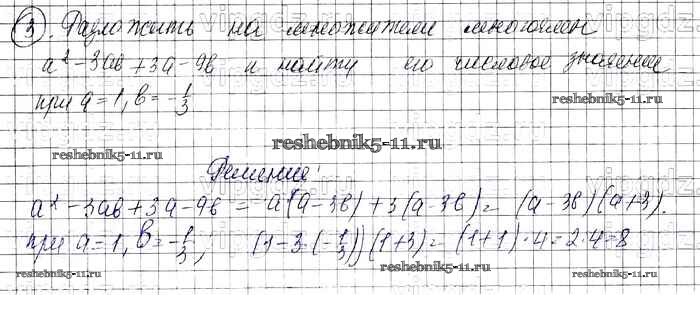 ③. Разложить на множители многочлен
a² - 3ab + 3a - 9b и найти его числовое значение
при a = 1, b = -1/3
reshebnik5-11.ru
reshebnik5-11.ru
Решение:
a² - 3ab + 3a - 9b = a(a - 3b) + 3(a - 3b) = (a - 3b)(a + 3).
при a = 1, b = -1/3, (1 - 3·(-1/3))(1 + 3) = (1 + 1)·4 = 2·4 = 8
reshebnik5-11.ru
reshebnik5-11.ru
reshebnik5-11.ru